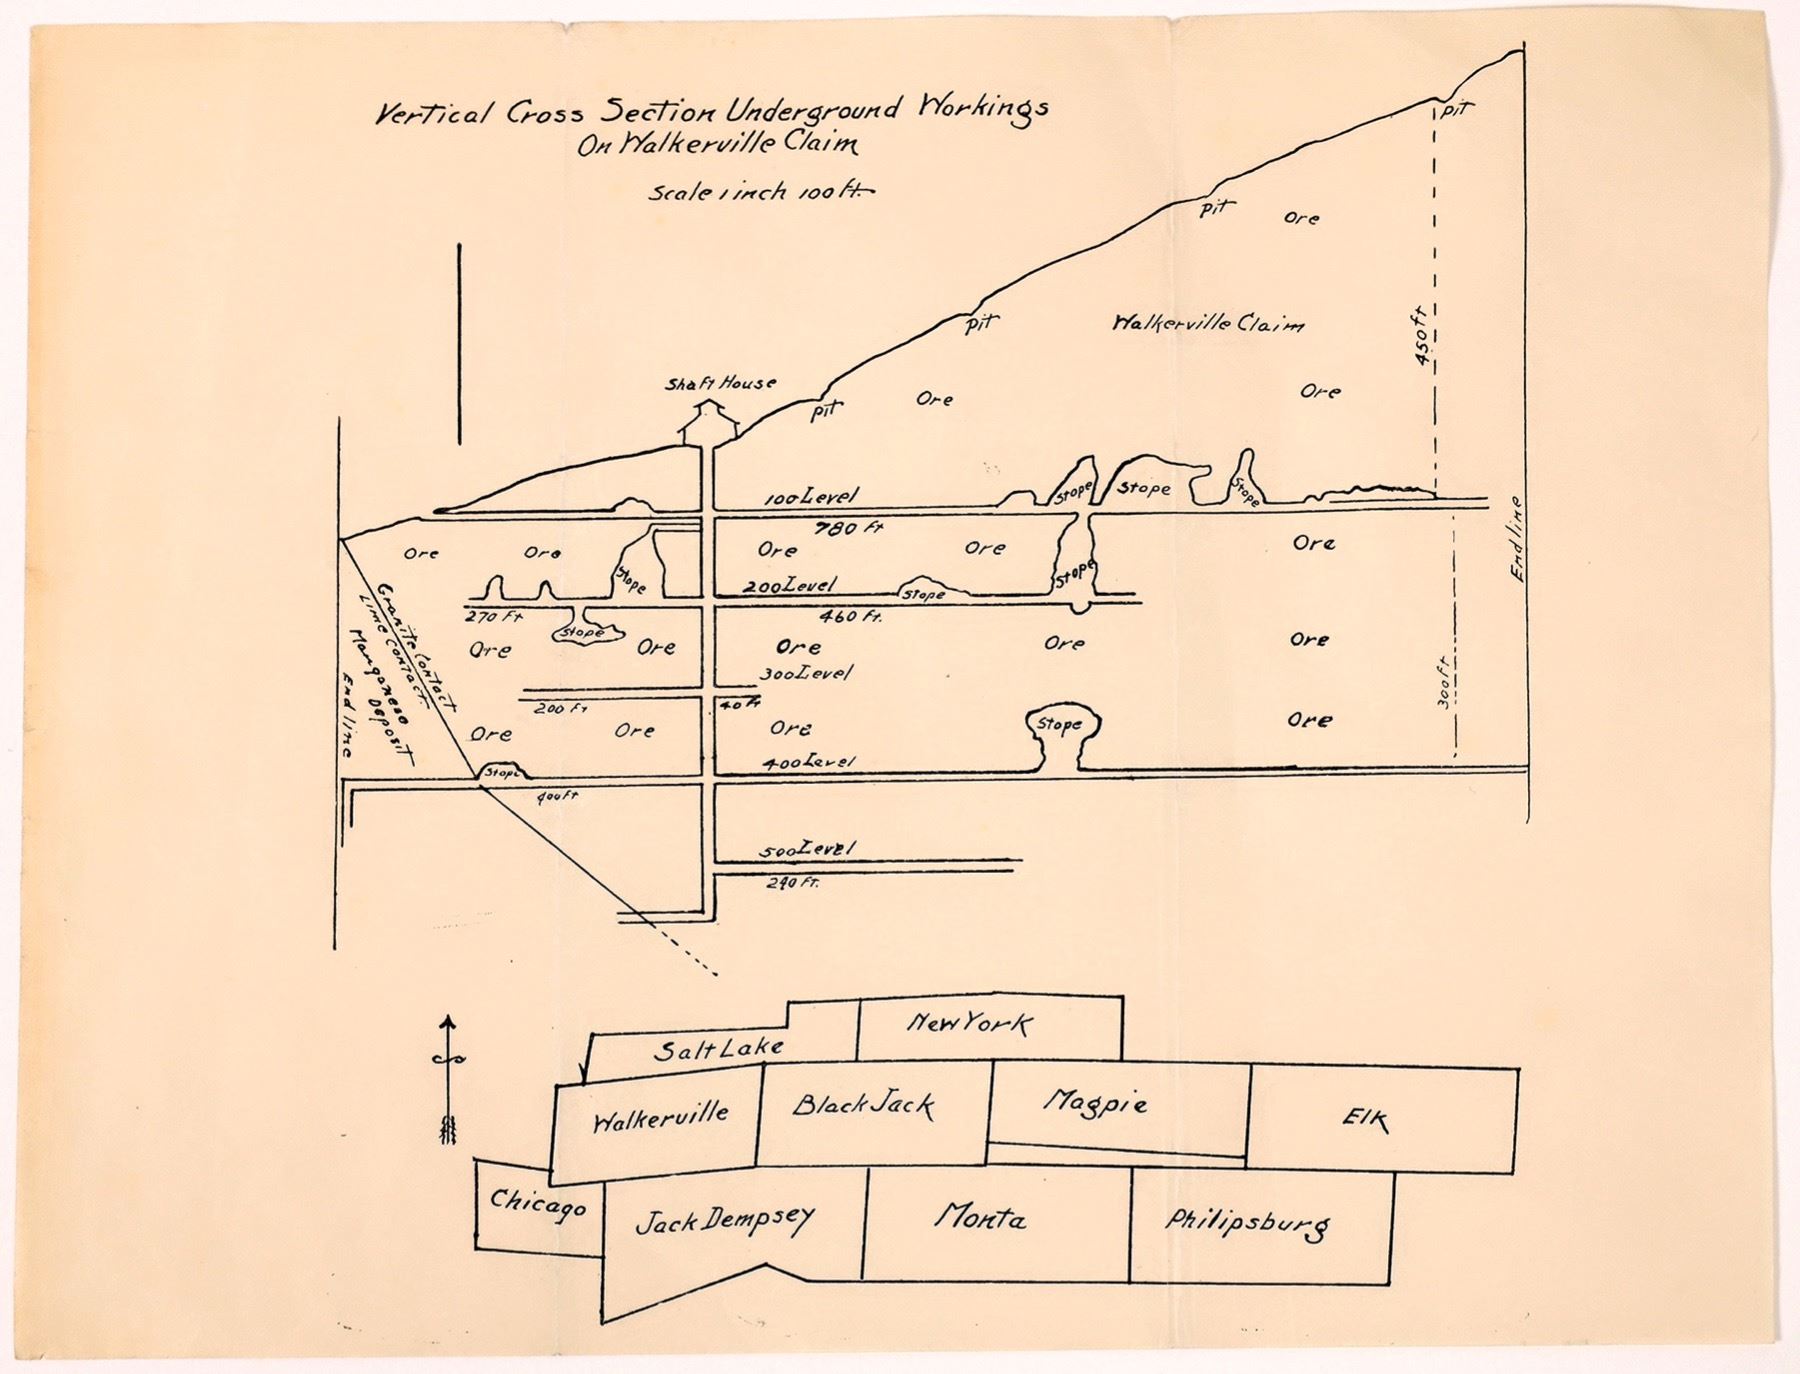 Vertical Cross Section Underground Workings
On Walkerville Claim
Scale 1 inch 100 ft.
pit
pit
Ore
pit
Walkerville Claim
450 ft
Shaft House
pit
Ore
Ore
100 Level
Stope
Stope
Stope
780 ft
End line
Ore
Ore
Ore
Ore
Ore
Stope
Stope
200 Level
Stope
270 Ft
460 ft.
Stope
Granite Contact
Lime Contact.
Manganese
Deposit
End line
Ore
Ore
Ore
Ore
Ore
300 Level
300 ft
200 Ft
40 Ft
Ore
Ore
Ore
Stope
Ore
Stope
400 Level
400 ft
500 Level
240 Ft.
New York
Salt Lake
Walkerville
Black Jack
Magpie
Elk
Chicago
Jack Dempsey
Monta
Philipsburg